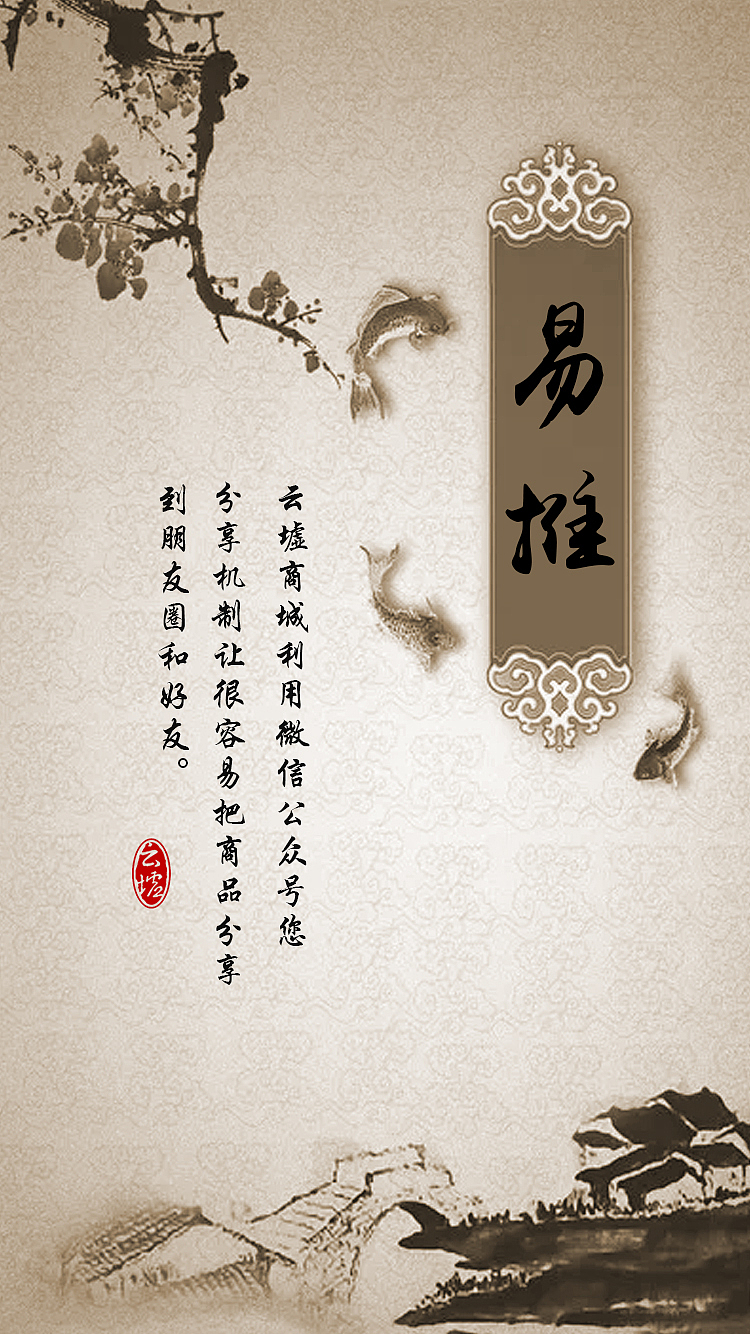 易推
云墟商城利用微信公众号您
分享机制让很容易把商品分享
到朋友圈和好友。
云墟